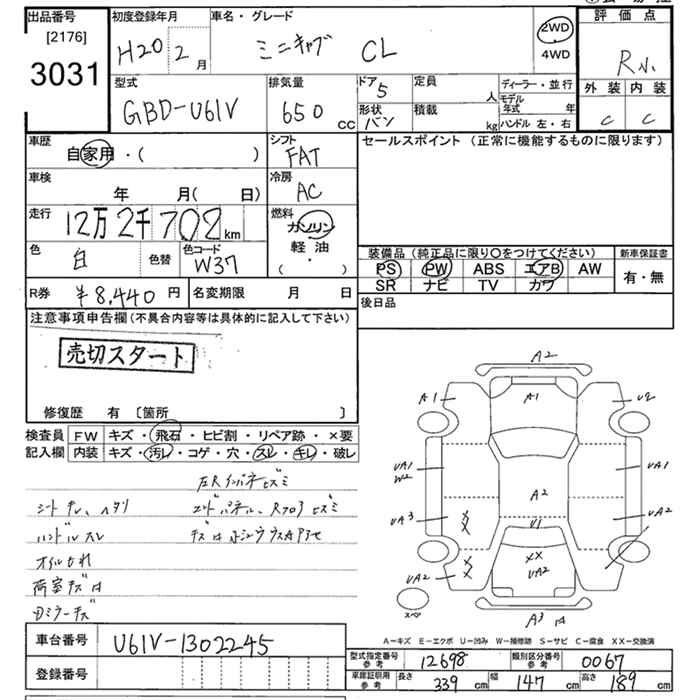 出品番号
[2176]
3031
初度登録年月
H20 2 月
車名・グレード
ミニキャブ CL
2WD
4WD
評価点
R小
外装 内装
C C
型式
GBD-U61V
排気量
650 cc
ドア
5
形状
バン
定員 人
積載 kg
ディーラー・並行
モデル年式 年
ハンドル 左・右
車歴
自家用・( )
シフト
FAT
セールスポイント (正常に機能するものに限ります)
車検
年 月( 日)
冷房
AC
走行
12万2千702km
燃料
ガソリン
軽・油
( ・ )
色
白
色替
色コード
W37
装備品(純正品に限り〇をつけてください)
PS PW ABS エアB AW
SR ナビ TV カワ
新車保証書
有・無
R券 ¥8,440 円
名変期限 月 日
後日品
注意事項申告欄(不具合内容等は具体的に記入して下さい)
売切スタート
修復歴 有 〔箇所 〕
検査員
記入欄
FW キズ・飛石・ヒビ割・リペア跡・×要
内装 キズ・汚レ・コゲ・穴・スレ・キレ・破レ
ハンドルスレ
荷室キズ
A2
A1 A1 U2
UA1
W2
UA1
A2
UA3 UA2
U1
XX
UA2
UA2
A3
スペア
A－キズ E－エクボ U－凹み W－補修跡 S－サビ C－腐食 XX－交換済
車台番号 U61V-1302245
登録番号
型式指定番号
参考
12698
類別区分番号
参考
0067
車庫証明用
参考
長さ 339 cm 幅 147 cm 高さ 189 cm